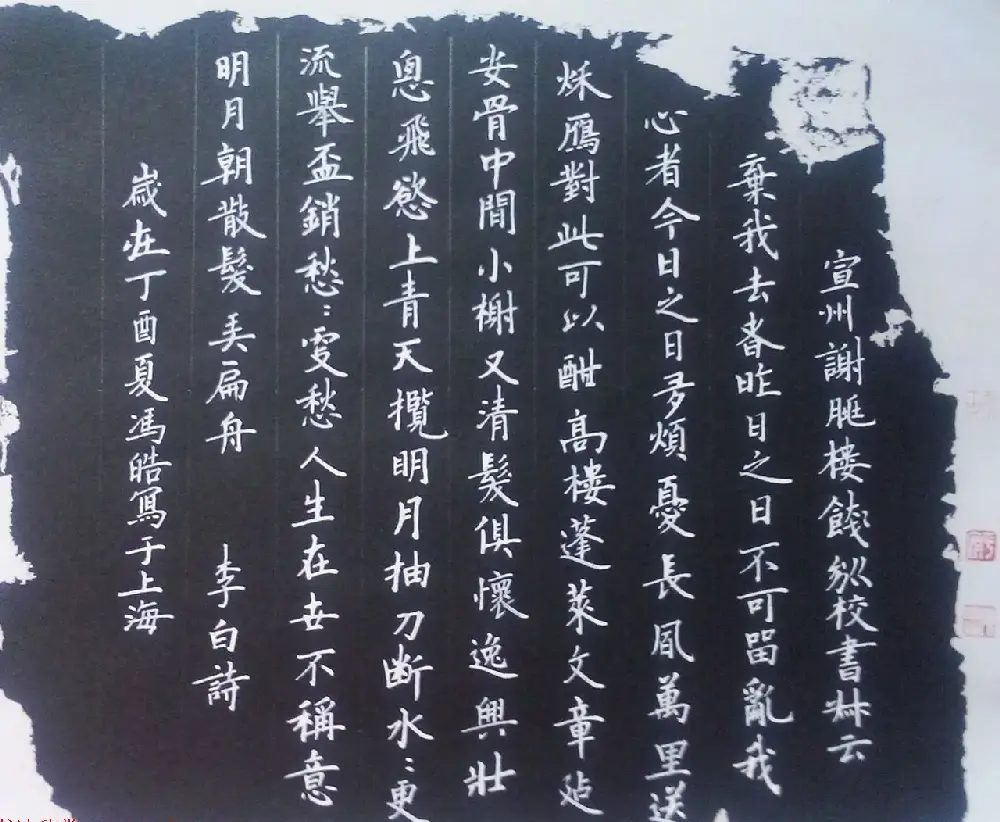 宣州謝脁樓餞別校書叔云
棄我去者昨日之日不可留亂我
心者今日之日多煩憂長風萬里送
秌鴈對此可以酣高樓蓬萊文章建
安骨中間小榭又清髮俱懷逸興壯
恖飛慾上青天攬明月抽刀断水：更
流舉盃銷愁：更愁人生在世不稱意
明月朝散髮弄扁舟 李白詩
歲在丁酉夏馮皓寫于上海